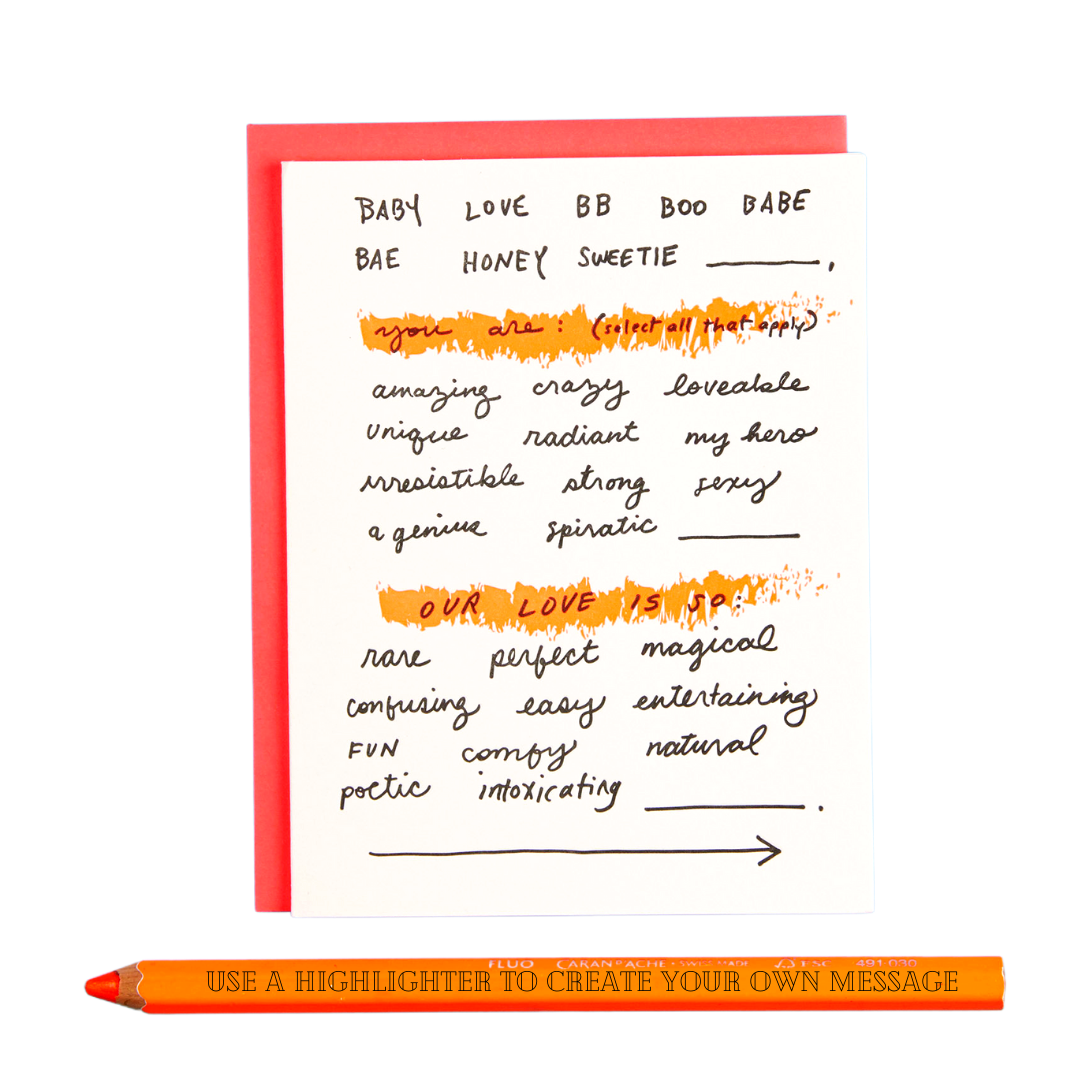 BABY LOVE BB BOO BABE
BAE HONEY SWEETIE ________,
you are: (select all that apply)
amazing crazy loveable
unique radiant my hero
irresistible strong sexy
a genius spiratic ________
OUR LOVE IS SO:
rare perfect magical
confusing easy entertaining
FUN comfy natural
poetic intoxicating ________.
FLUO CARAN D'ACHE • SWISS MADE FSC 491.030
USE A HIGHLIGHTER TO CREATE YOUR OWN MESSAGE